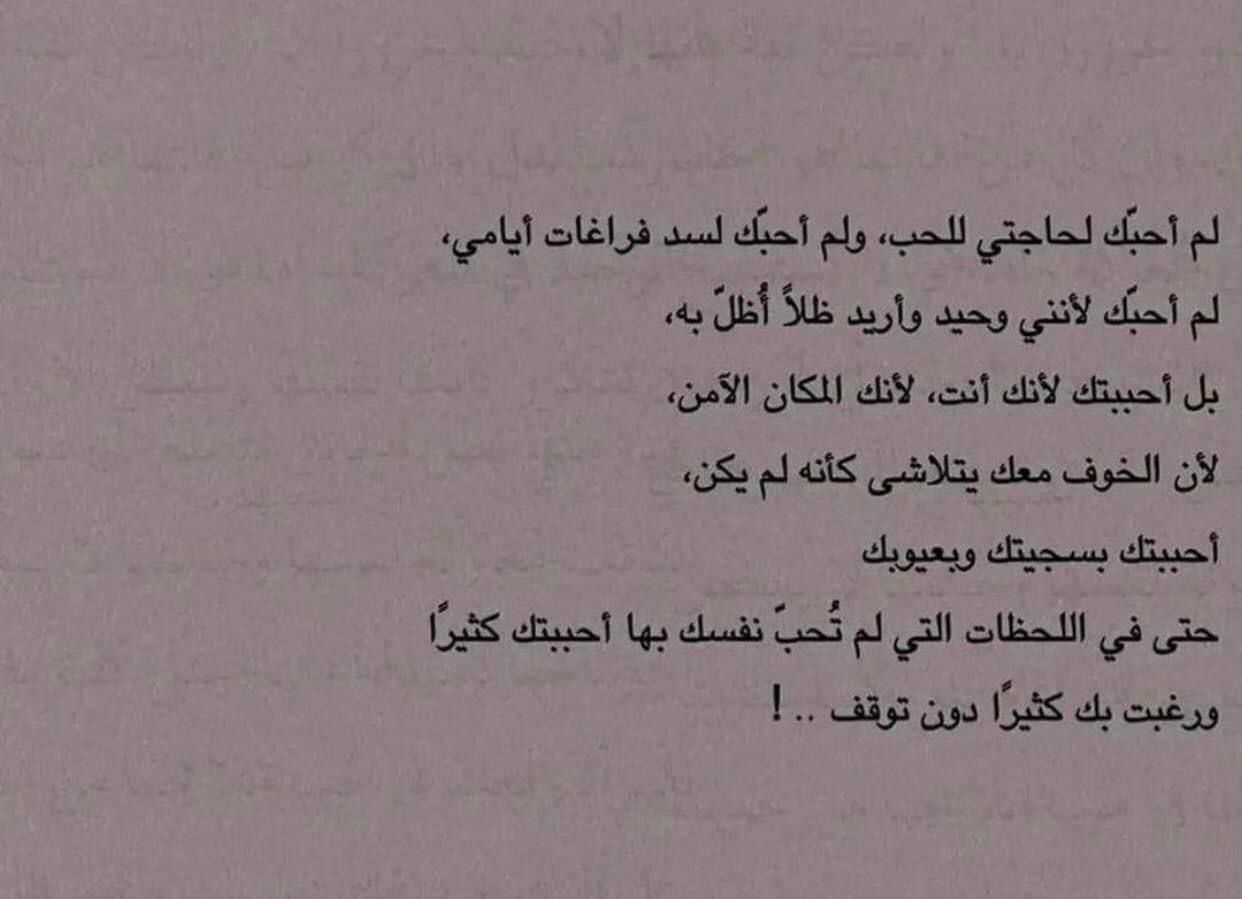 لم أحبّك لحاجتي للحب، ولم أحبّك لسد فراغات أيامي،
لم أحبّك لأنني وحيد وأريد ظلاً أُظلّ به،
بل أحببتك لأنك أنت، لأنك المكان الآمن،
لأن الخوف معك يتلاشى كأنه لم يكن،
أحببتك بسجيتك وبعيوبك
حتى في اللحظات التي لم تُحبّ نفسك بها أحببتك كثيرًا
ورغبت بك كثيرًا دون توقف .. !